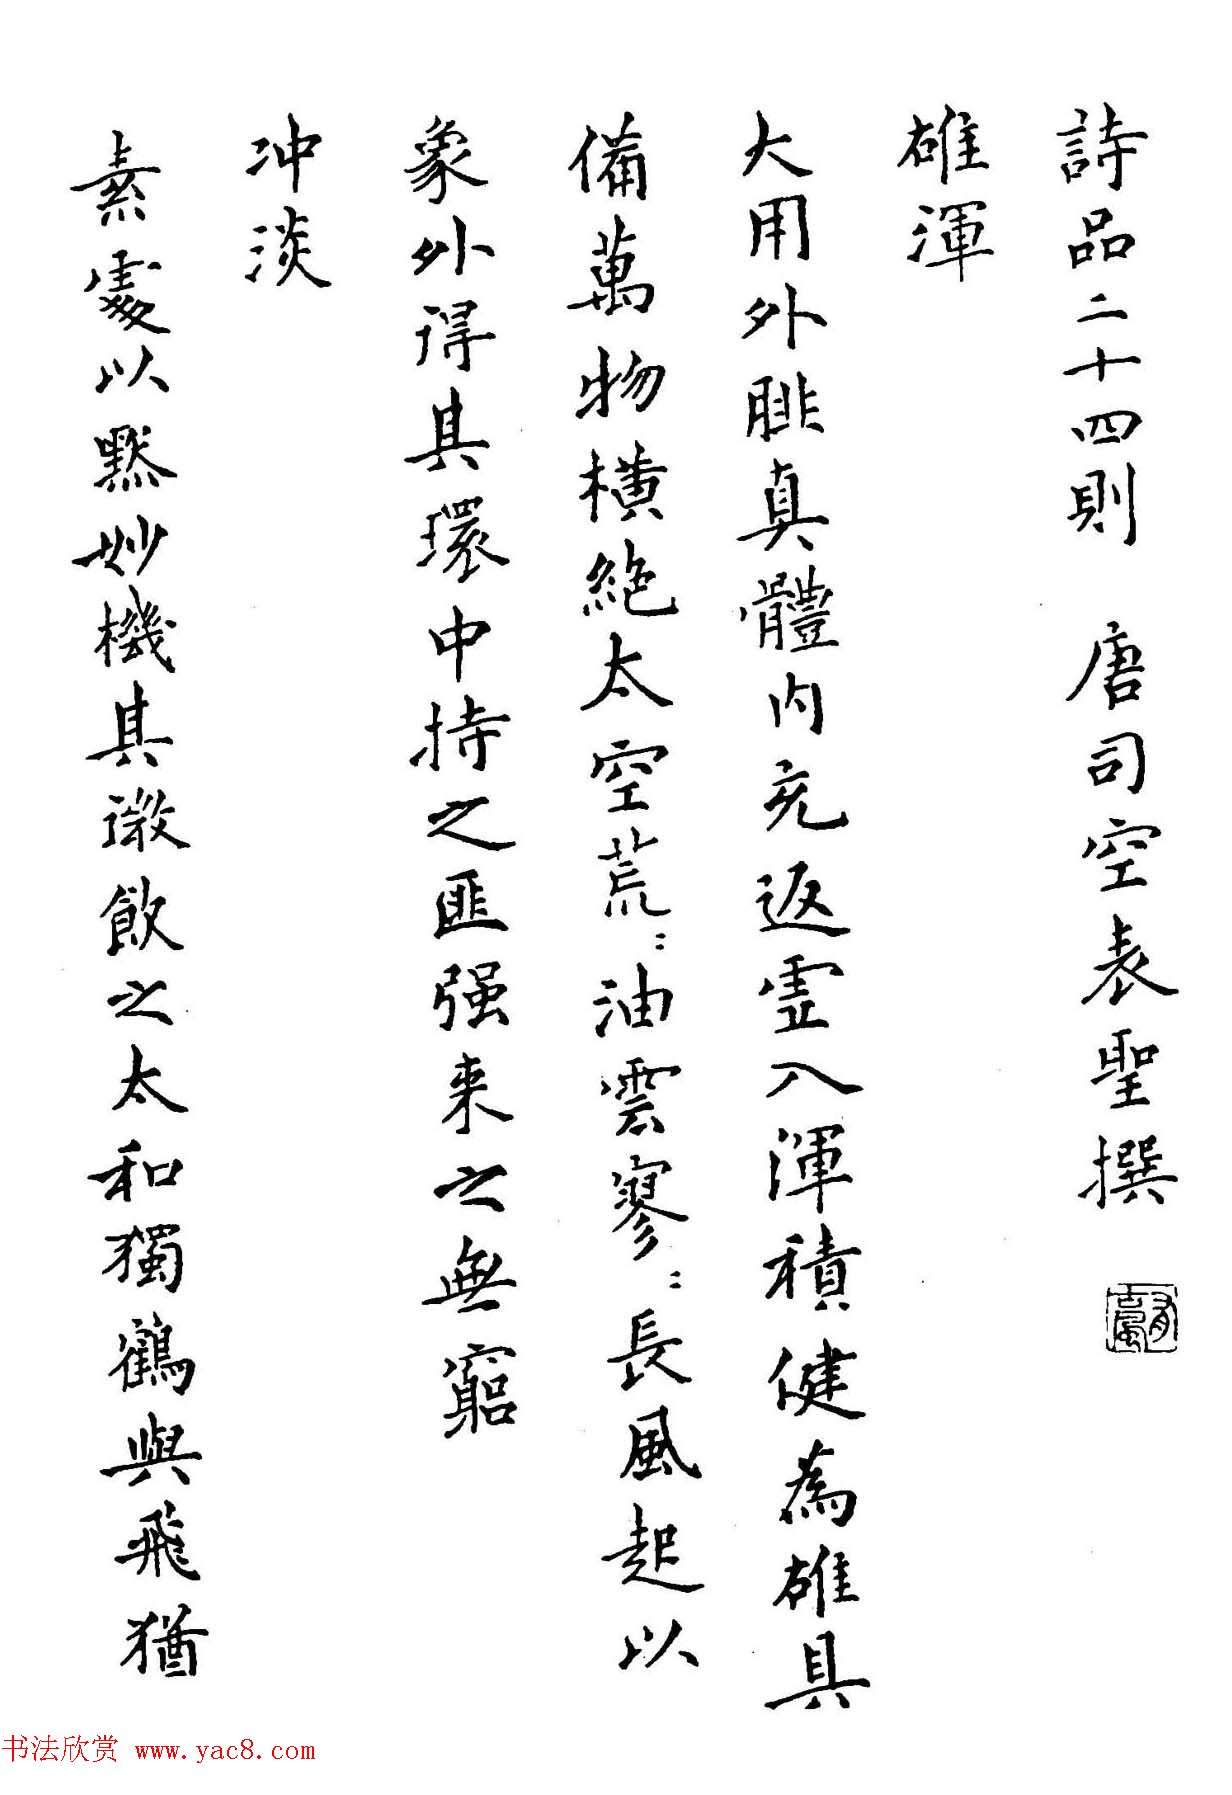 詩品二十四則 唐司空表聖撰
雄渾
大用外腓真體内充返虛入渾積健為雄具
備萬物横絶太空荒〻油雲寥〻長風起以
象外得其環中持之匪强来之無窮
冲淡
素處以黙妙機其微飲之太和獨鶴與飛猶
书法欣赏 www.yac8.com